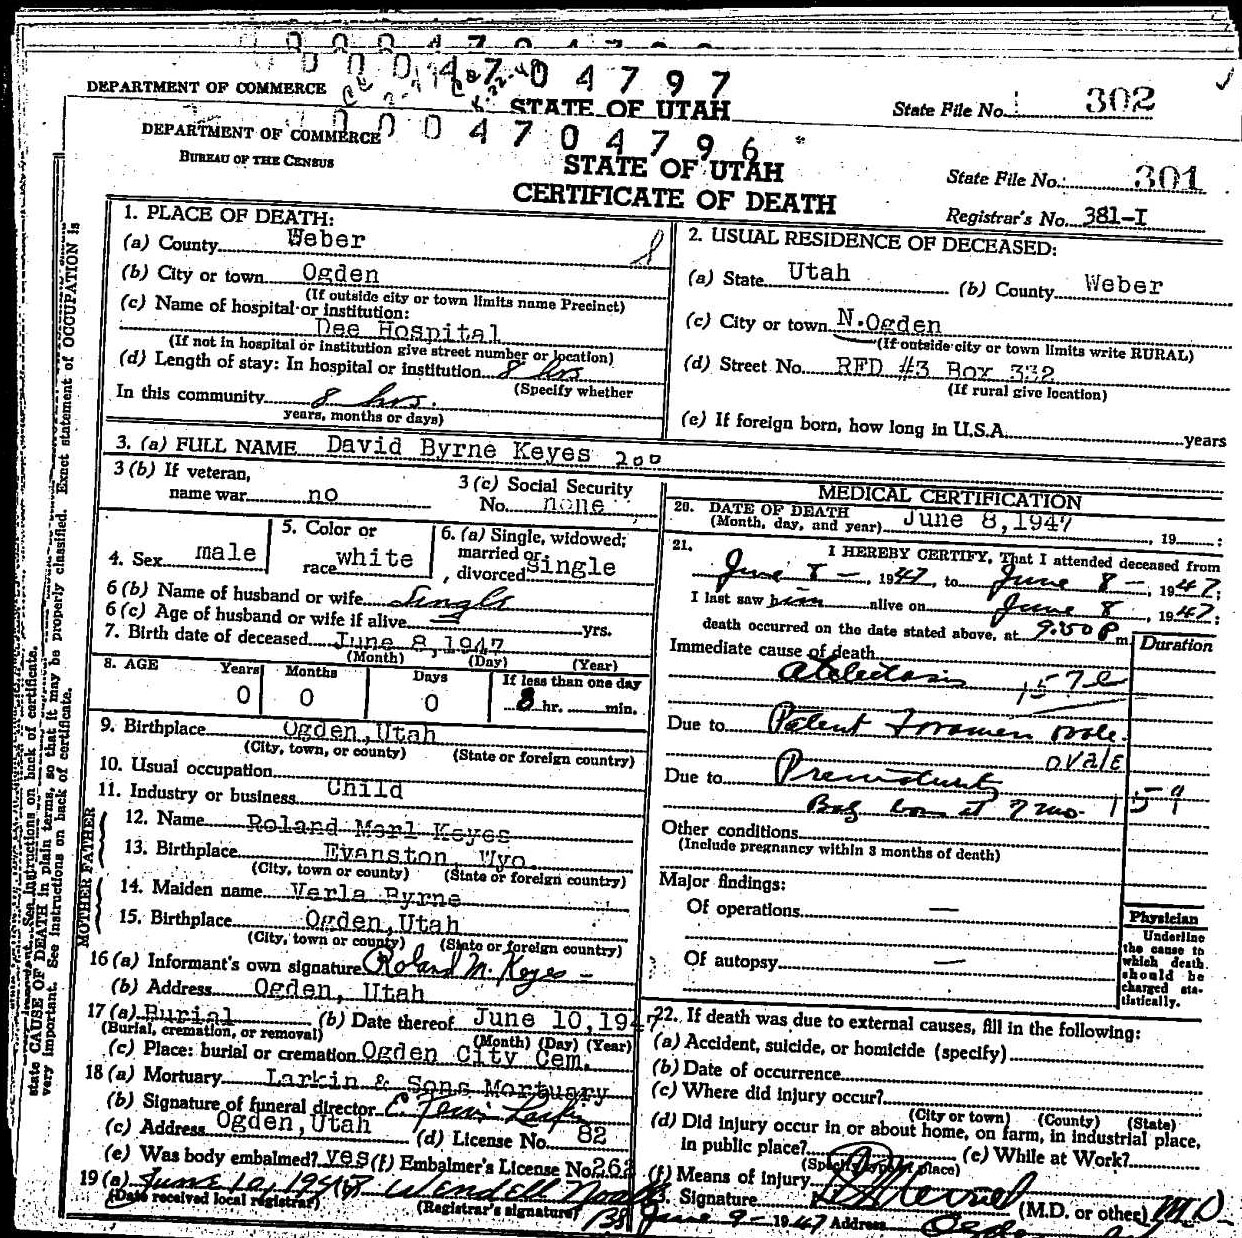 0004704797
DEPARTMENT OF COMMERCE
STATE OF UTAH
State File No. 302
0004704796
DEPARTMENT OF COMMERCE
BUREAU OF THE CENSUS
STATE OF UTAH
CERTIFICATE OF DEATH
State File No. 301
Registrar's No. 381-I
1. PLACE OF DEATH:
(a) County Weber
(b) City or town Ogden
(If outside city or town limits name Precinct)
(c) Name of hospital or institution:
Dee Hospital
(If not in hospital or institution give street number or location)
(d) Length of stay: In hospital or institution 8 hrs
(Specify whether
In this community 8 hrs.
years, months or days)
2. USUAL RESIDENCE OF DECEASED:
(a) State Utah (b) County Weber
(c) City or town N.Ogden
(If outside city or town limits write RURAL)
(d) Street No. RFD #3 Box 332
(If rural give location)
(e) If foreign born, how long in U.S.A. years
3. (a) FULL NAME David Byrne Keyes 200
3 (b) If veteran,
name war no
3 (c) Social Security
No. none
4. Sex male
5. Color or
race white
6. (a) Single, widowed,
married or
divorced single
6 (b) Name of husband or wife Single
6 (c) Age of husband or wife if alive — yrs.
7. Birth date of deceased June 8, 1947
(Month) (Day) (Year)
8. AGE Years Months Days If less than one day
0 0 0 8 hr. min.
9. Birthplace Ogden, Utah
(City, town, or county) (State or foreign country)
10. Usual occupation
11. Industry or business Child
FATHER
12. Name Roland Merl Keyes
13. Birthplace Evanston, Wyo.
(City, town or county) (State or foreign country)
MOTHER
14. Maiden name Verla Byrne
15. Birthplace Ogden, Utah
(City, town or county) (State or foreign country)
16 (a) Informant's own signature Roland M. Keyes
(b) Address Ogden, Utah
17 (a) Burial (b) Date thereof June 10, 1947
(Burial, cremation, or removal) (Month) (Day) (Year)
(c) Place: burial or cremation Ogden City Cem.
18 (a) Mortuary Larkin & Sons Mortuary
(b) Signature of funeral director Larkin
(c) Address Ogden, Utah (d) License No. 82
(e) Was body embalmed? yes (f) Embalmer's License No. 262
19 (a) June 10, 1947 Wendell
(Date received local registrar) (Registrar's signature)
MEDICAL CERTIFICATION
20. DATE OF DEATH
(Month, day, and year) June 8, 1947, 19 ;
21. I HEREBY CERTIFY, That I attended deceased from
June 8 –, 1947, to June 8 –, 1947;
I last saw him alive on June 8, 1947;
death occurred on the date stated above, at 9:50 P m
Immediate cause of death Duration
Atelectasis 157
Due to Patent Foramen ovale.
ovale
Due to Prematurity
Baby born at 7 mo. 159
Other conditions
(Include pregnancy within 3 months of death)
Major findings:
Of operations —
Of autopsy —
Physician
Underline
the cause to
which death
should be
charged sta-
tistically.
22. If death was due to external causes, fill in the following:
(a) Accident, suicide, or homicide (specify)
(b) Date of occurrence
(c) Where did injury occur?
(City or town) (County) (State)
(d) Did injury occur in or about home, on farm, in industrial place,
in public place? (e) While at Work?
(Specify type of place)
(f) Means of injury
Signature (M.D. or other) M.D.
June 9 - 1947 Address Ogden
state CAUSE OF DEATH in plain terms, so that it may be properly classified. Exact statement of OCCUPATION is
very important. See instructions on back of certificate.